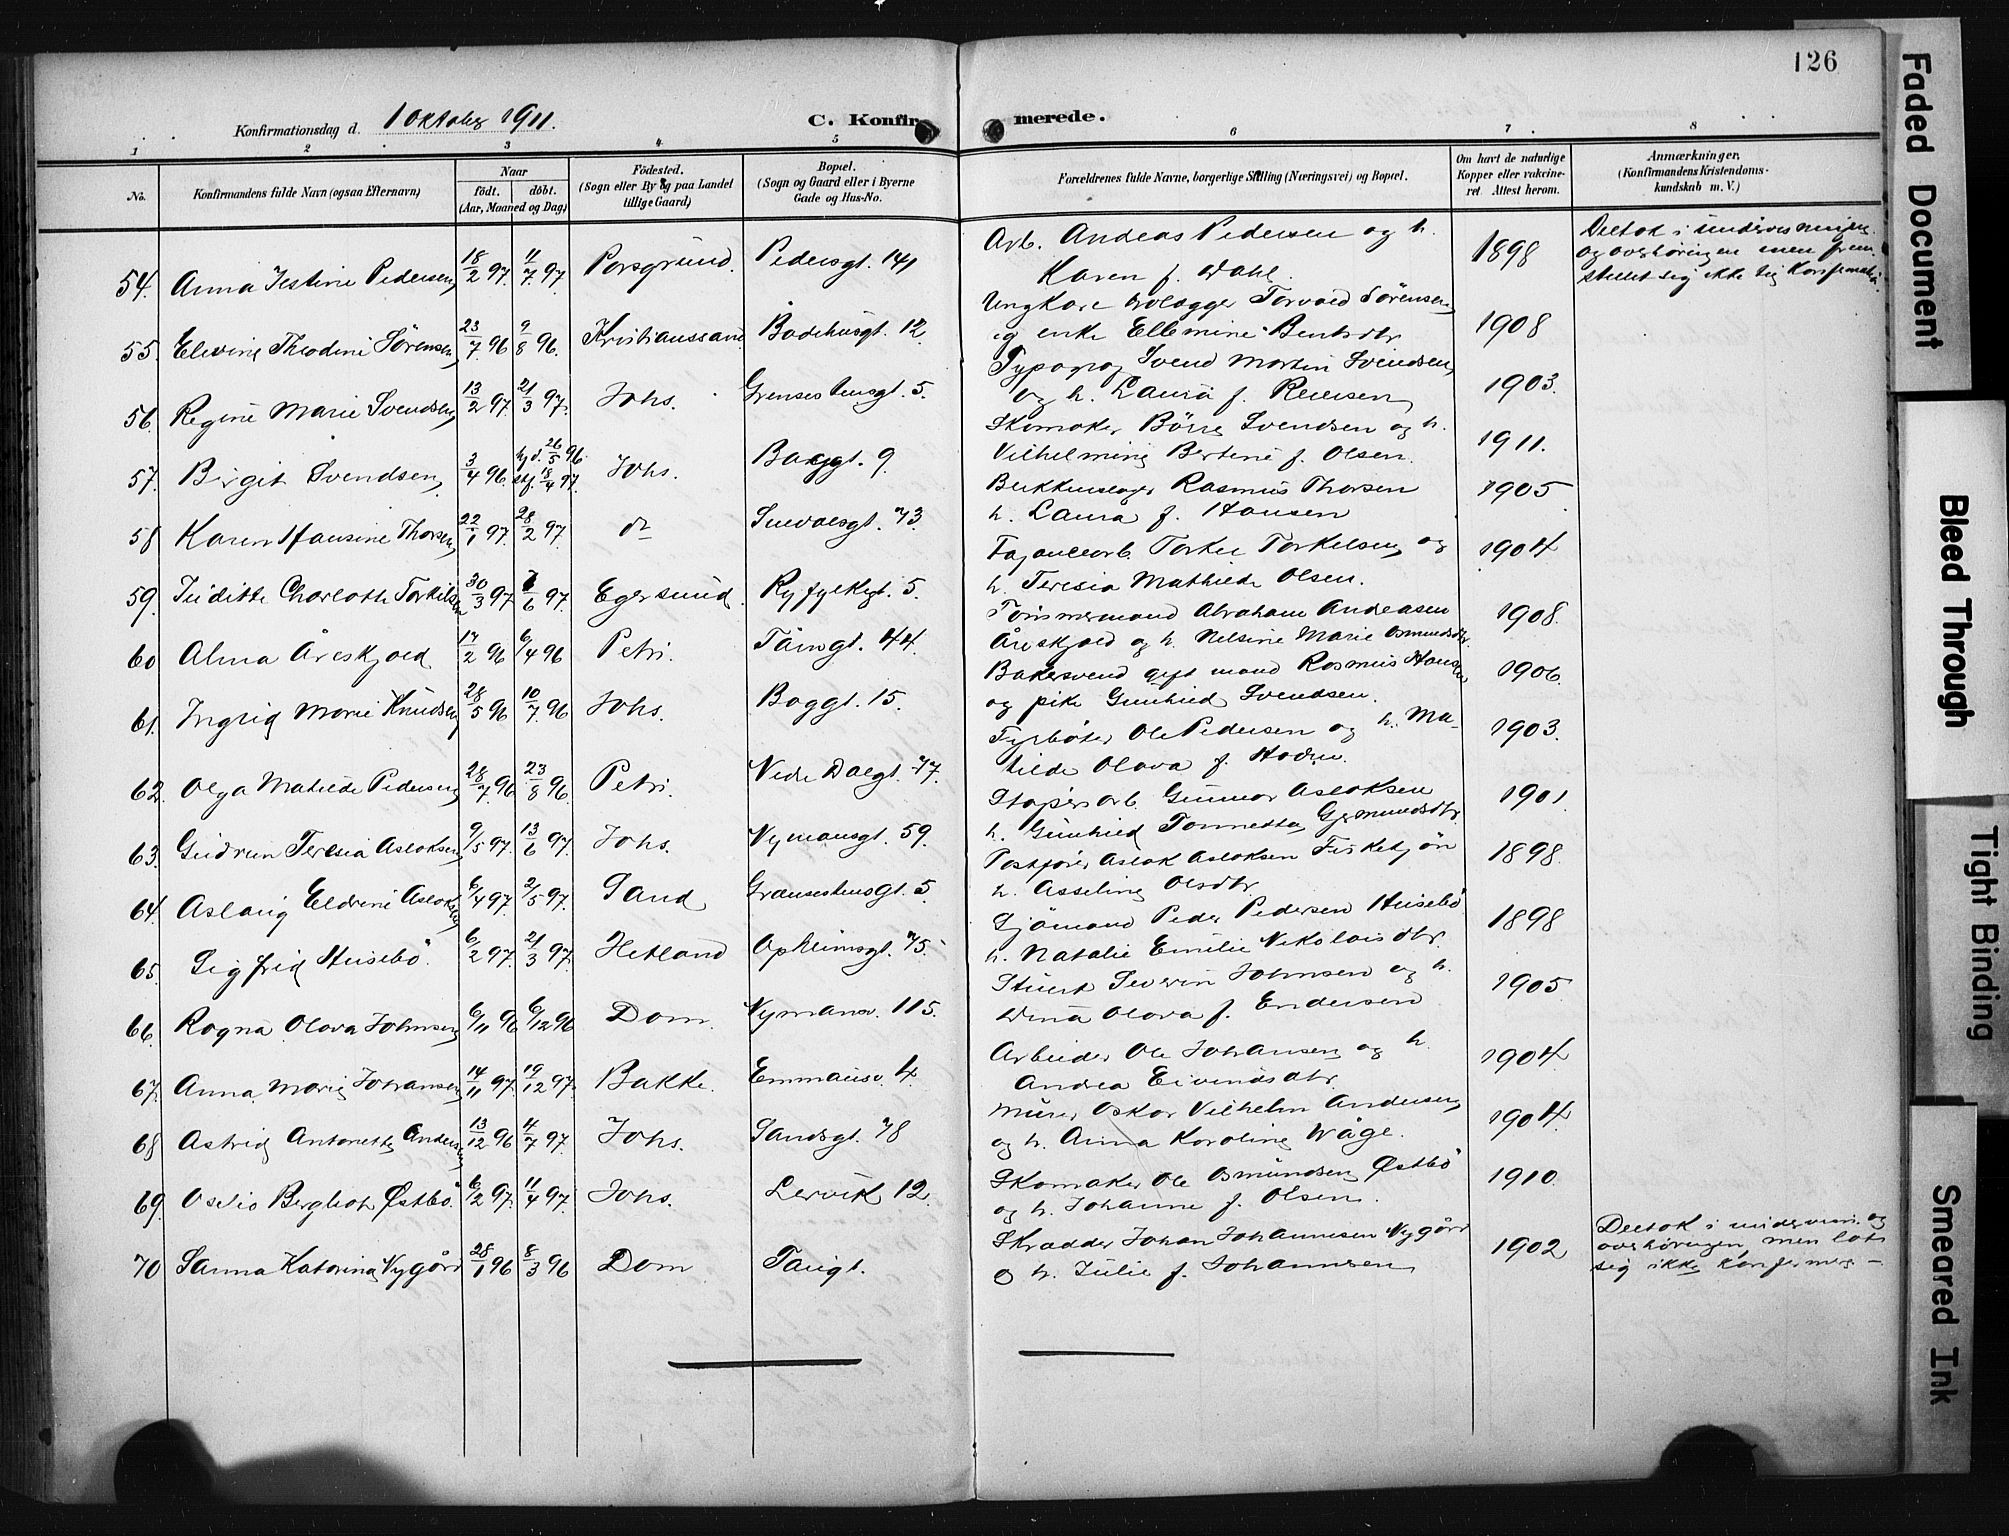 126
Konfirmationsdag d. 1 Oktober 1911.
C. Konfirmerede.
1 2 3 4 5 6 7 8
No.
Konfirmandens fulde Navn (ogsaa Efternavn)
Naar
født. døbt.
(Aar, Maaned og Dag)
Fødested.
(Sogn eller By og paa Landet
tillige Gaard)
Bopæl.
(Sogn og Gaard eller i Byerne
Gade og Hus-No.
Forældrenes fulde Navne, borgerlige Stilling (Næringsvei) og Bopæl.
Om havt de naturlige
Kopper eller vakcine-
ret. Attest herom.
Anmærkninger.
(Konfirmandens Kristendoms-
kundskab m. V.)
54. Anna Jestine Pedersen 18/2 97. 11/7 97. Porsgrund. Pedersgt. 141 Arb. Andeas Pedersen og h. Karen f. Wahl. 1898 Deltok i undervisningen og overhøringen men fremstillet sig ikke til Konfirmation.
55. Elevine Theodine Sørensen 23/7 96 9/8 96. Kristianssand Badehusgt. 12 Ungkare Torvald Sørensen og enke Ellemine Bentsdtr 1908
56. Regine Marie Svendsen 13/2 97. 21/3 97. Johs. Grensestensgt. 5. Typograf Svend Martin Svendsen og h. Laura f. Reiersen 1903.
57. Birgit Svendsen 3/4 96. hj.d. 26/5 96 stf. 18/4 97. Johs. Bakkegt. 9. Skomaker Børre Svendsen og h. Vilhelmine Bertine f. Olsen. 1911.
58 Karen Hansine Thorsen 22/1 97. 28/2 97. do Suevalsgt. 73. Blikkenslager Rasmus Thorsen h. Laura f. Hansen 1905
59. Juditte Charlotte Torkilsen 30/3 97 7/6 97. Egersund. Ryfylkegt. 5. Fajancearb. Torkel Torkelsen og h. Teresia Mathilde Olsen. 1904
60 Alma Åreskjold 17/2 96 6/4 96 Petri. Tåingt. 44. Tømmermand Abraham Andeasen Åreskjold og h. Nelsine Marie Osmundsdtr. 1908.
61. Ingrid Marie Knudsen 28/5 96 10/7 96 Johs. Baggt. 15. Bakersvend gift mand Rasmus Hansen og pike Gunhild Svendsen. 1906.
62. Olga Matilde Pedersen 28/7 96. 23/8 96. Petri. Nedre Dalgt. 77. Fyrbøter Ole Pedersen og h. Matilde Olava f. Hodne. 1903.
63. Gudrun Teresia Aslaksen 9/5 97. 13/6 97. Johs. Nymansgt. 59. Støperiarb. Gunnar Aslaksen h. Gunhild Tonnetta Germundsdtr 1901.
64. Aslaug Eldrine Aslaksen 6/4 97. 2/5 97. Sand Grænsestensgt. 5 Postfører Aslak Aslaksen Fisketjøn h. Asseline Olsdtr. 1898.
65. Sigfrid Husebø. 6/2 97. 21/3 97. Hetland Opheimsgt. 75. Sjömand Peder Pedersen Husebø h. Natalie Emilie Nikolaisdtr. 1898
66. Ragna Olava Johnsen 6/11 96 6/12 96 Dom. Nymansv. 115. Stuert Severin Johnsen og h. Dina Olava f. Endersen 1905
67. Anna Marie Johansen 14/11 97. 19/12 97. Bakke. Emmausv. 4. Arbeider Ole Johansen og h. Andrea Eivendsdtr. 1904.
68 Astrid Antonette Andersen 13/12 96 4/7 97. Johs. Sandsgt. 78 Murer Oskar Vilhelm Andersen og h. Anna Karoline Wåge. 1904.
69. Osvio Bergliot Østbø. 6/2 97. 11/4 97. Johs. Lervik 12. Skomaker Ole Osmundsen Østbø og h. Johanne f. Olsen. 1910.
70 Sanna Katarina Nygård 28/1 96 8/3 96 Dom Taugt. Skrædder Johan Johannesen Nygård o h. Julie f. Johannesen 1902 Deltok i undervisn. og overhøringen, men lot sig ikke konfirmere –
Faded Document
Bleed Through
Tight Binding
Smeared Ink